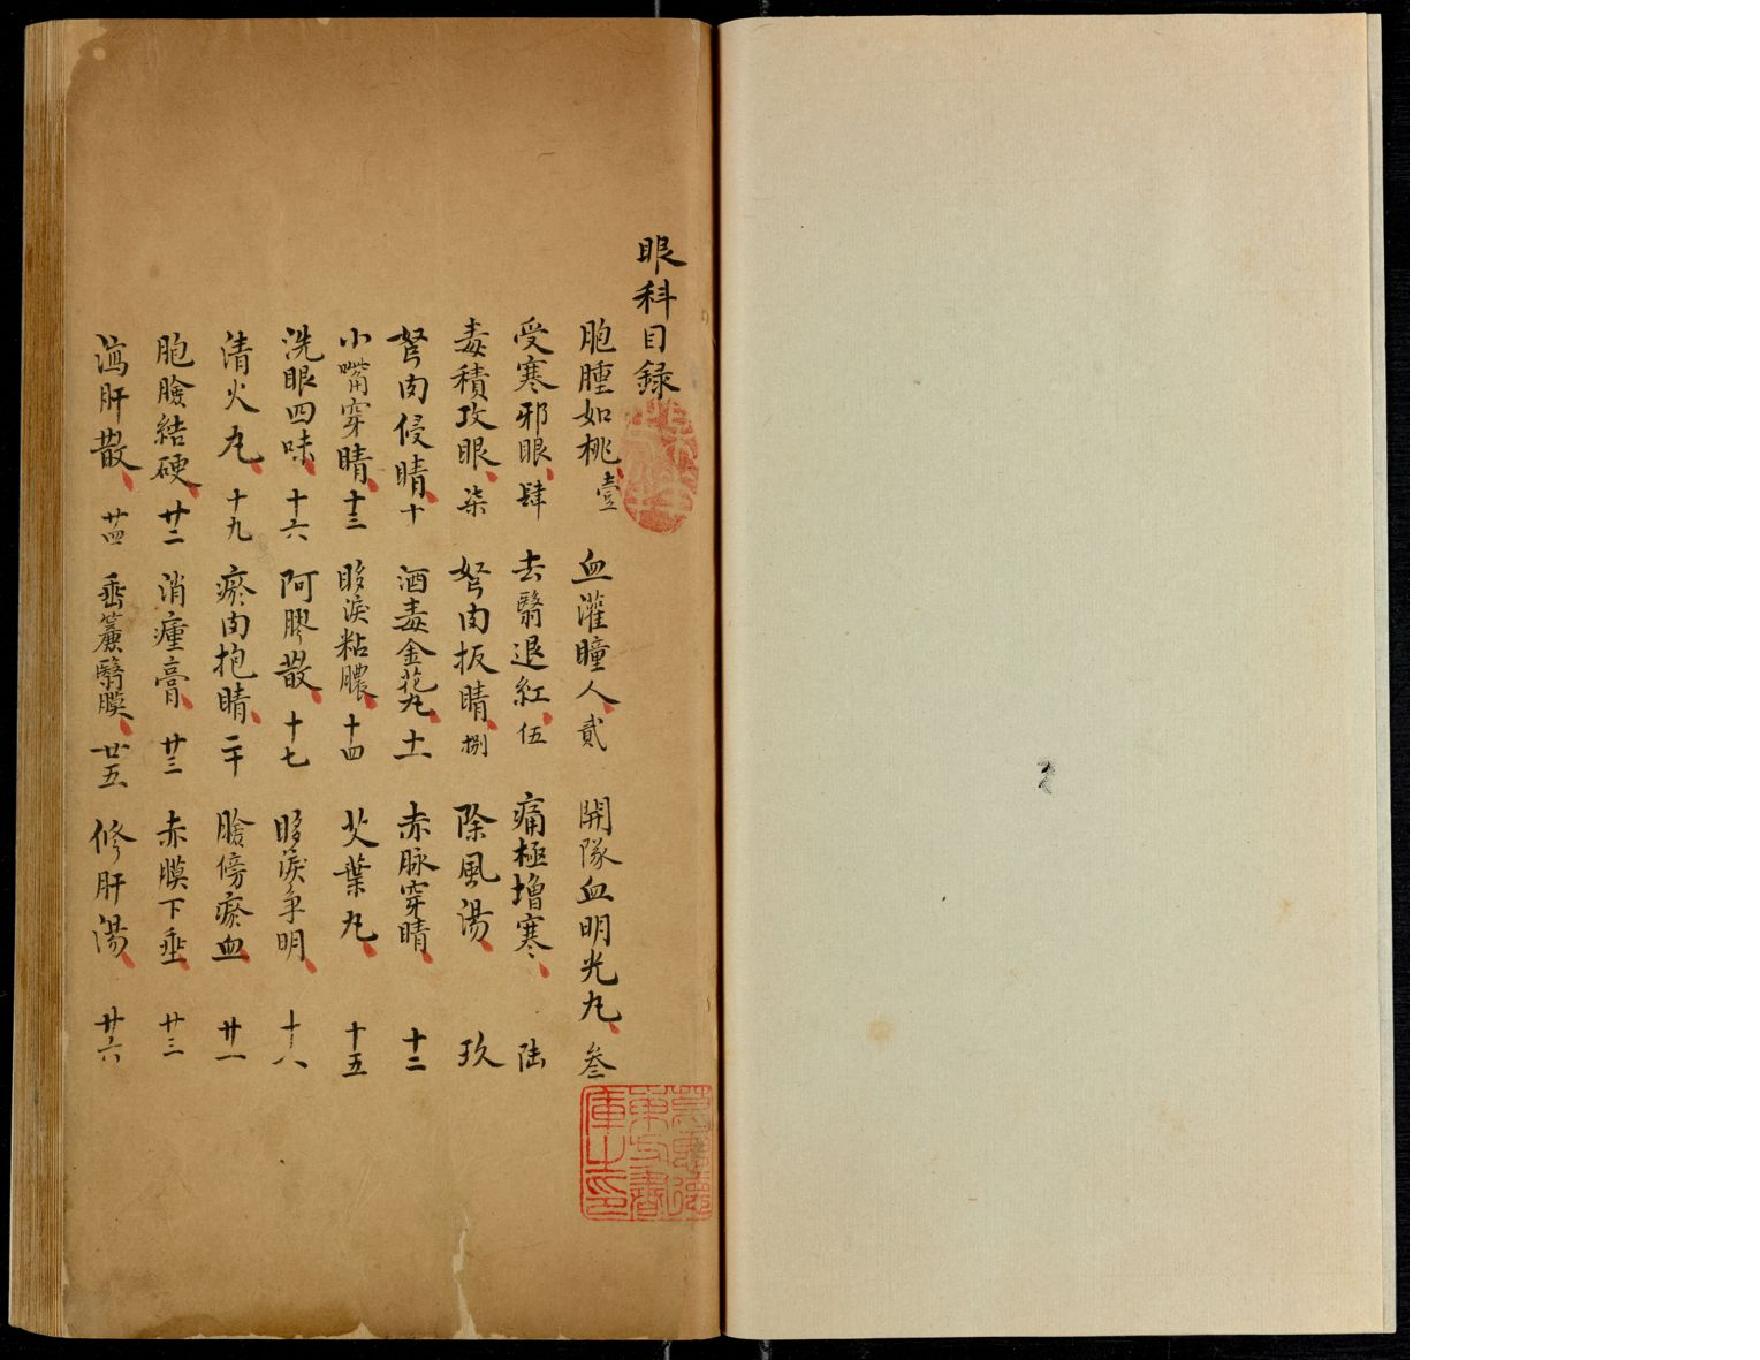 眼科目録
胞腫如桃 壹 血灌瞳人 貳 開隊血明光丸 叁
受寒邪眼 肆 去翳退紅 伍 痛極增寒 陸
毒積攻眼 柒 弩肉扳睛 捌 除風湯 玖
弩肉侵睛 十 酒毒金花丸 十一 赤脉穿睛 十二
小嘴穿睛 十三 眵淚粘膿 十四 艾葉丸 十五
洗眼四味 十六 阿膠散 十七 眵淚争明 十八
清火丸 十九 瘀肉抱睛 二十 臉傍瘀血 廿一
胞臉結硬 廿二 消瘇膏 廿三 赤膜下垂 廿三
瀉肝散 廿四 垂簾翳膜 廿五 修肝湯 廿六